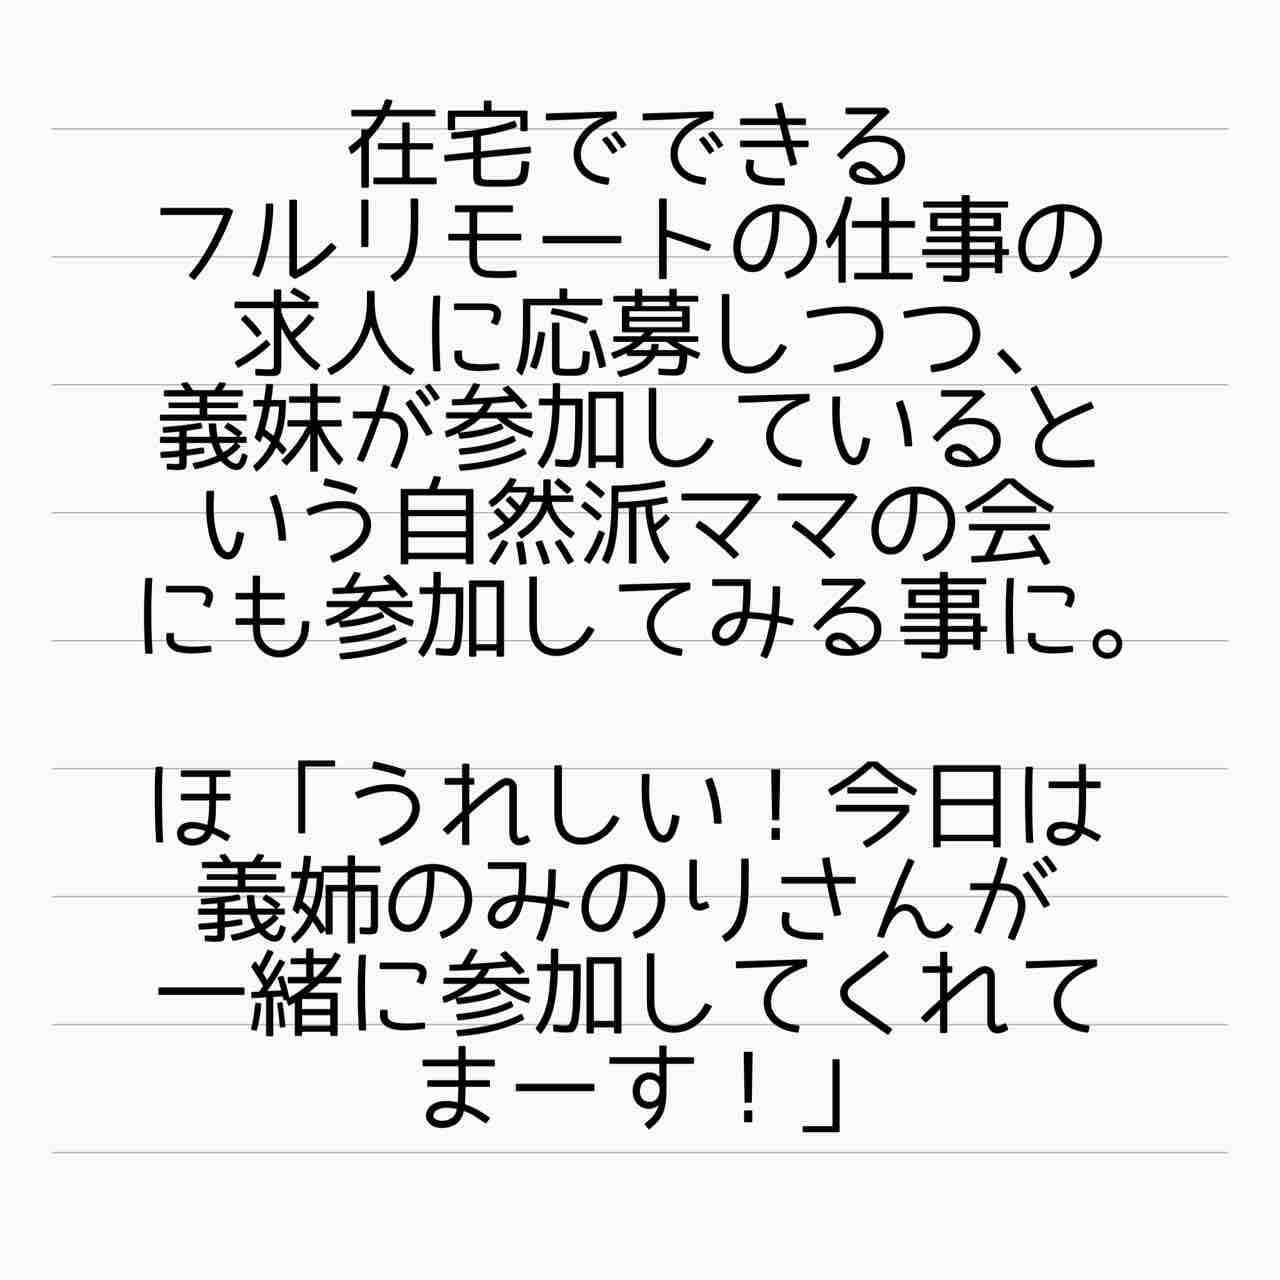 在宅でできる
フルリモートの仕事の
求人に応募しつつ、
義妹が参加していると
いう自然派ママの会
にも参加してみる事に。
ほ「うれしい！今日は
義姉のみのりさんが
一緒に参加してくれて
まーす！」